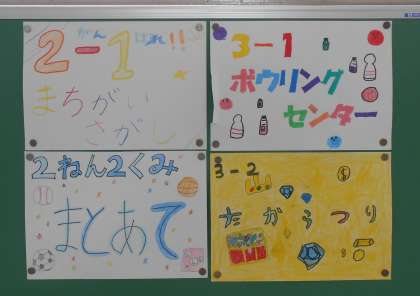 2-1 がんばれ!!
まちがい
さがし
3-1
ボウリング
センター
2ねん2くみ
まとあて
3-2
たからつり